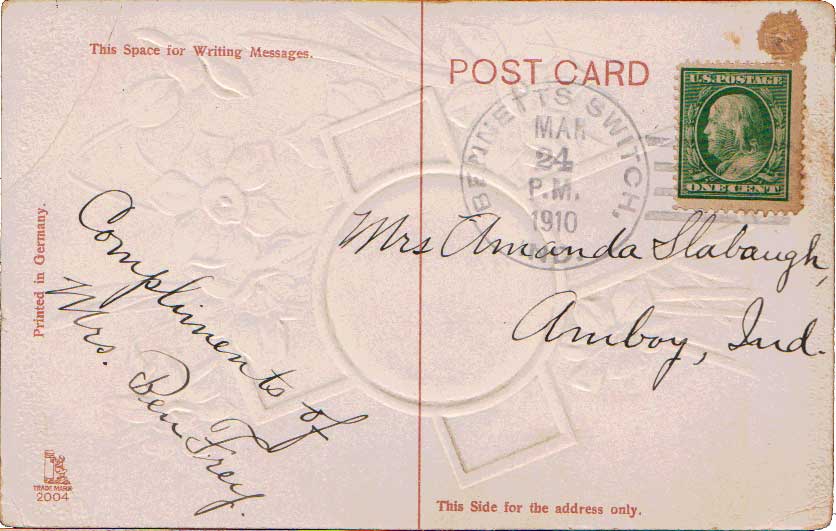 This Space for Writing Messages.
POST CARD
U.S. POSTAGE
ONE CENT
BENNETTS SWITCH,
MAR
24
P.M.
1910
IND.
Mrs Amanda Slabaugh,
Amboy, Ind.
Compliments of
Mrs. Ben Frey.
Printed in Germany.
TRADE MARK
2004
This Side for the address only.